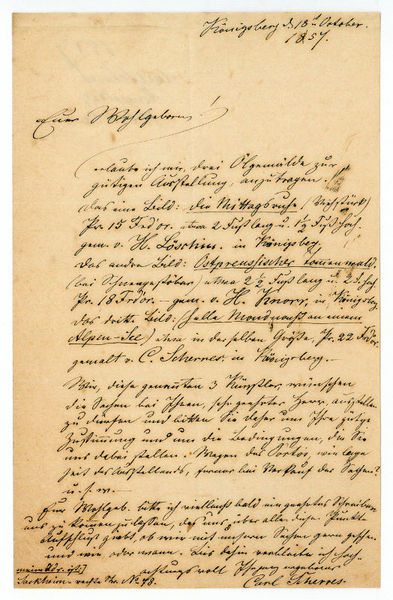 Königsberg d. 13t October
1857.
Euer Wohlgeboren!
erlaube ich mir, drei Oelgemälde zur
gütigen Ausstellung, anzutragen.
Das eine Bild: die Mittagsruhe, (Viehstück)
Pr. 15 Frdor. etwa 2 Fuß lang u. 1½ Fuß hoch
gem. v. H. in Königsberg.
Das andre Bild: Ostpreussischer Tannenwald.
(bei Schneegestöber) etwa 2½ Fuß lang u. 2 F. hoch
Pr. 18 Frdor. – gem. v. H. Knorr, in Königsberg
das dritte Bild (helle Mondnacht an einem
Alpen-See) etwa in derselben Größe, Pr. 22 Frdor.
gemalt v. C. Scherres, in Königsberg.
Wir, diese genannten 3 Künstler, wünschen
die Sachen bei Ihnen, sehr geehrter Herr, ausstellen
zu dürfen und bitten Sie daher um Ihre gütige
Zustimmung und um die Bedingungen, die Sie
uns dabei stellen. Wegen des Portos, wie lange
Zeit des Ausstellens, ferner bei Verkauf der Sachen?
u. s. w.
Euer Wohlgeb. bitte ich vielleicht bald ein geehrtes Schreiben
uns zukommen zu lassen, das uns über alle diese Punkte
Aufschluß giebt, ob wir mit unsern Sachen gern gesehen
und wie oder wann. Bis dahin verbleibe ich hoch-
achtungsvoll Ihr ergebener
Carl Scherres.
meine Adr. ist
Sackheim – rechte Str. No 78.